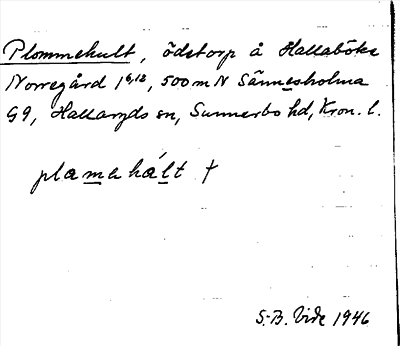 Plommehult, ödetorp å Hallaböke
Norregård 1⁶,¹², 500 m N Sännesholma
G9, Hallaryds sn, Sunnerbo hd, Kron. l.
plamehált †
S.-B. Vide 1946